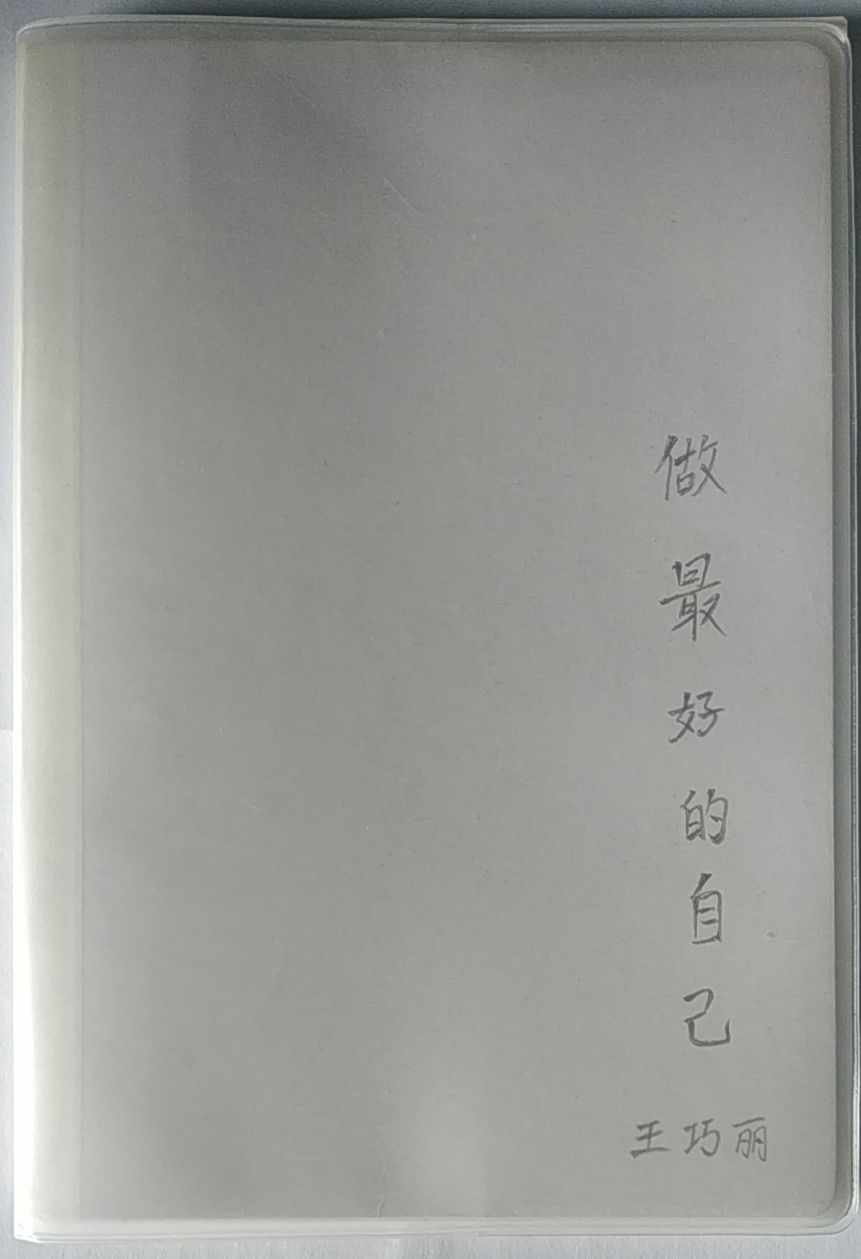 做最好的自己
王巧丽